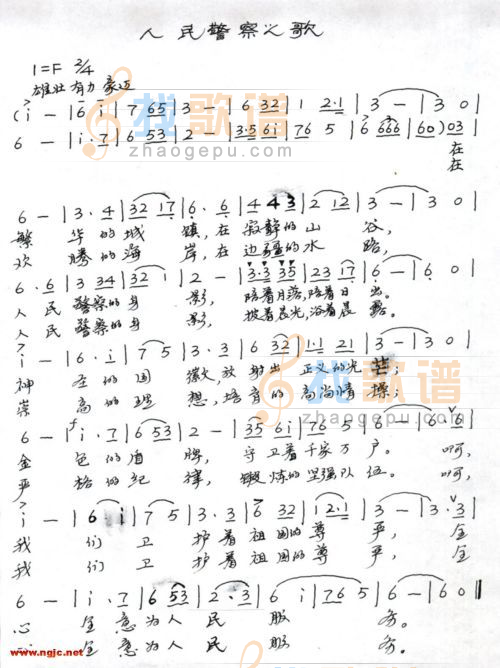 人民警察之歌
1=F 2/4
雄壮 有力 豪迈
(i - | 6 i | 7 65 | 3 - | 6 32 | 1 2·1 | 3 - | 3 0 |
6 - | i·7 | 6 53 | 2 - | 3·5 6i | 76 5 | 6 666 | 60) 03 |
在
在
找歌谱
zhaogepu.com
6 - | 3·4 | 32 17 | 6·6 | 4 43 | 2 12 | 3 - | 3 0 |
繁华的城镇,在寂静的山谷,
欢腾的海岸,在边疆的水路,
6·6 | 3 34 | 32 1 | 2 - | 3·3 35 | 23 17 | 6 - | 6 0 |
人民警察的身影,陪着月落,陪着日出。
人民警察的身影,披着晨光,浴着晨露。
i - | 6·i | 7 5 | 3·3 | 6 32 | 1·1 21 | 3 - | 3 0 |
神圣的国徽,放射出正义的光芒;
崇高的理想,培育的高尚情操;
找歌谱
zhaogepu.com
6 - | i·7 | 6 53 | 2 - | 35 6i | 76 5 | 6 - | 6 6 |
金色的盾牌,守卫着千家万户。啊,
严格的纪律,锻炼的坚强队伍。啊,
i - | 6 i | 7 5 | 3·3 | 6 32 | 1 2·1 | 3 - | 3·3 |
我们卫护着祖国的尊严,全
我们卫护着祖国的尊严,全
6 - | i·7 | 6 53 | 2·3 | 6 i | 76 5 | 6 - | 6 0 ‖
心全意为人民服务。
心全意为人民服务。
www.ngjc.net